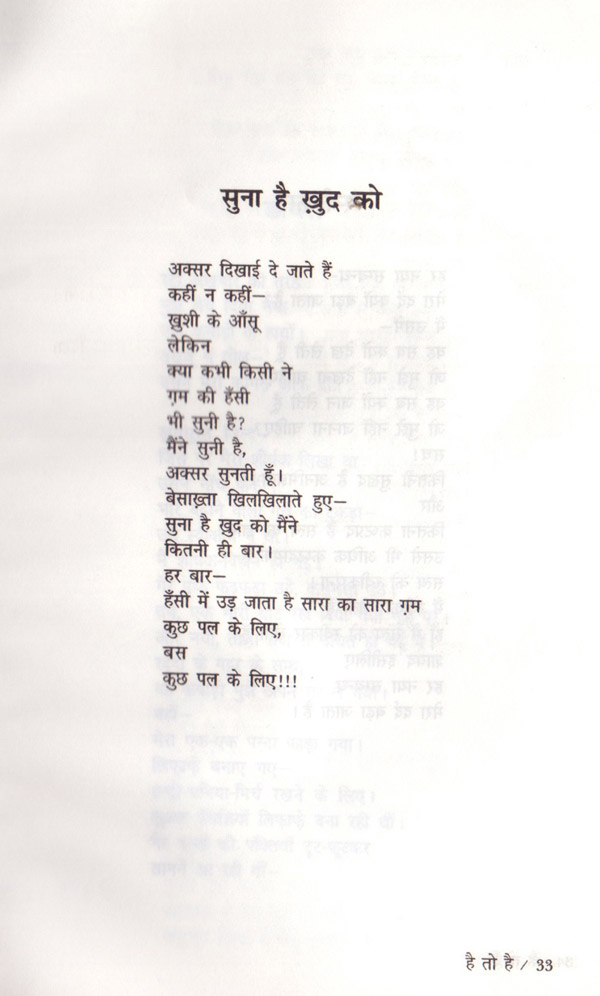 सुना है ख़ुद को
अक्सर दिखाई दे जाते हैं
कहीं न कहीं–
ख़ुशी के आँसू
लेकिन
क्या कभी किसी ने
ग़म की हँसी
भी सुनी है?
मैंने सुनी है,
अक्सर सुनती हूँ।
बेसाख़्ता खिलखिलाते हुए–
सुना है ख़ुद को मैंने
कितनी ही बार।
हर बार–
हँसी में उड़ जाता है सारा का सारा ग़म
कुछ पल के लिए,
बस
कुछ पल के लिए!!!
है तो है / 33